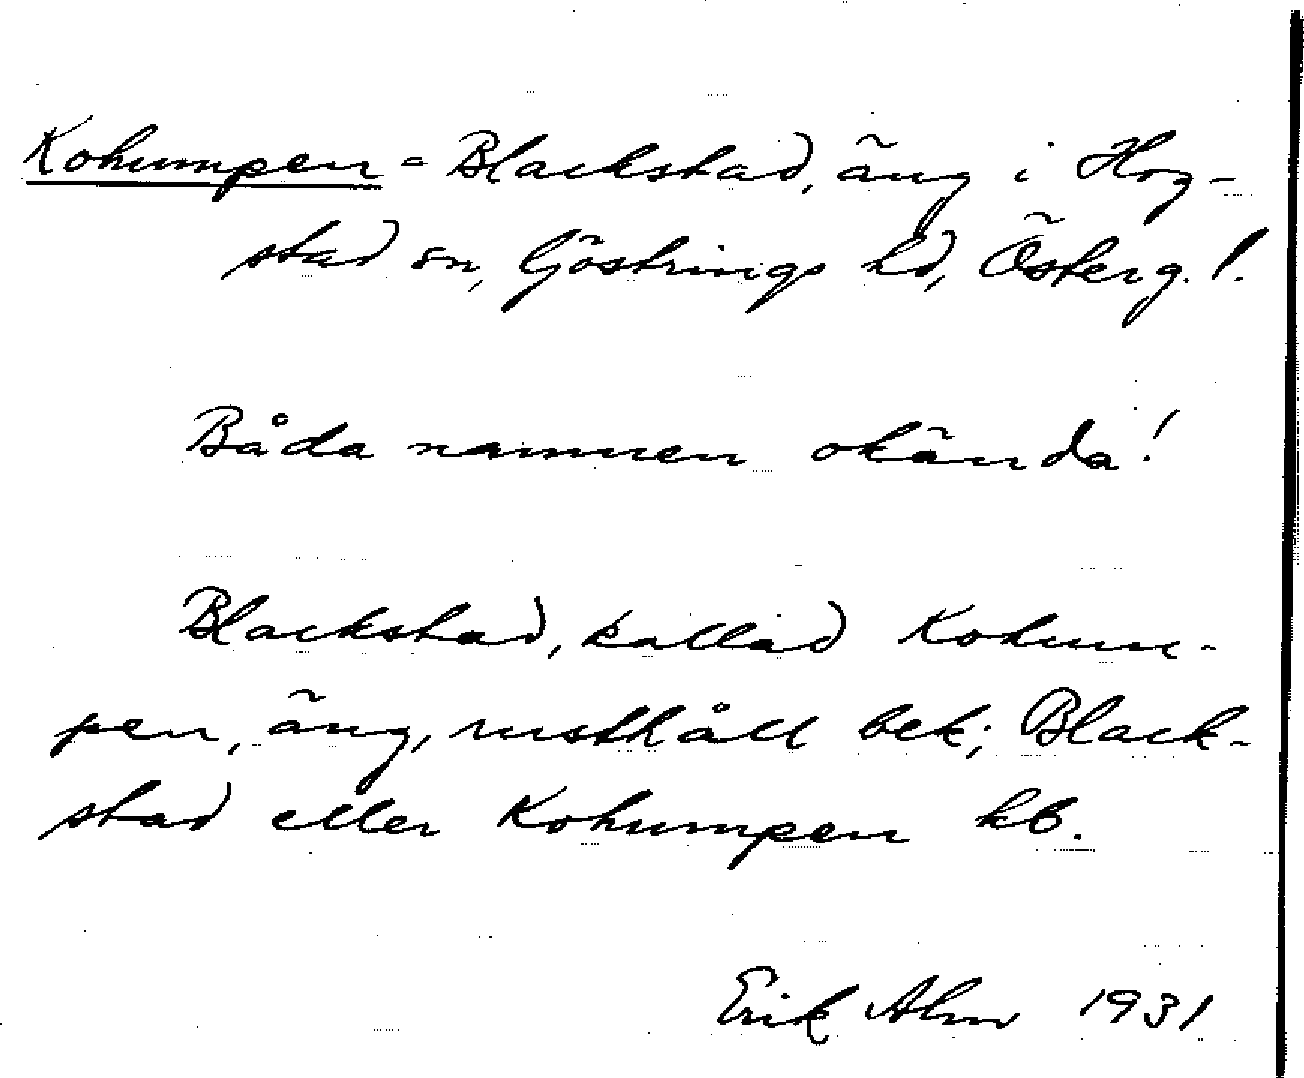 Kohumpen = Blackstad, äng i Hog-
stad sn, Göstrings hd, Österg. l.
Båda namnen okända!
Blackstad, kallad Kohum-
pen, äng, rusthåll bek; Black-
stad eller Kohumpen kb.
Erik Alm 1931